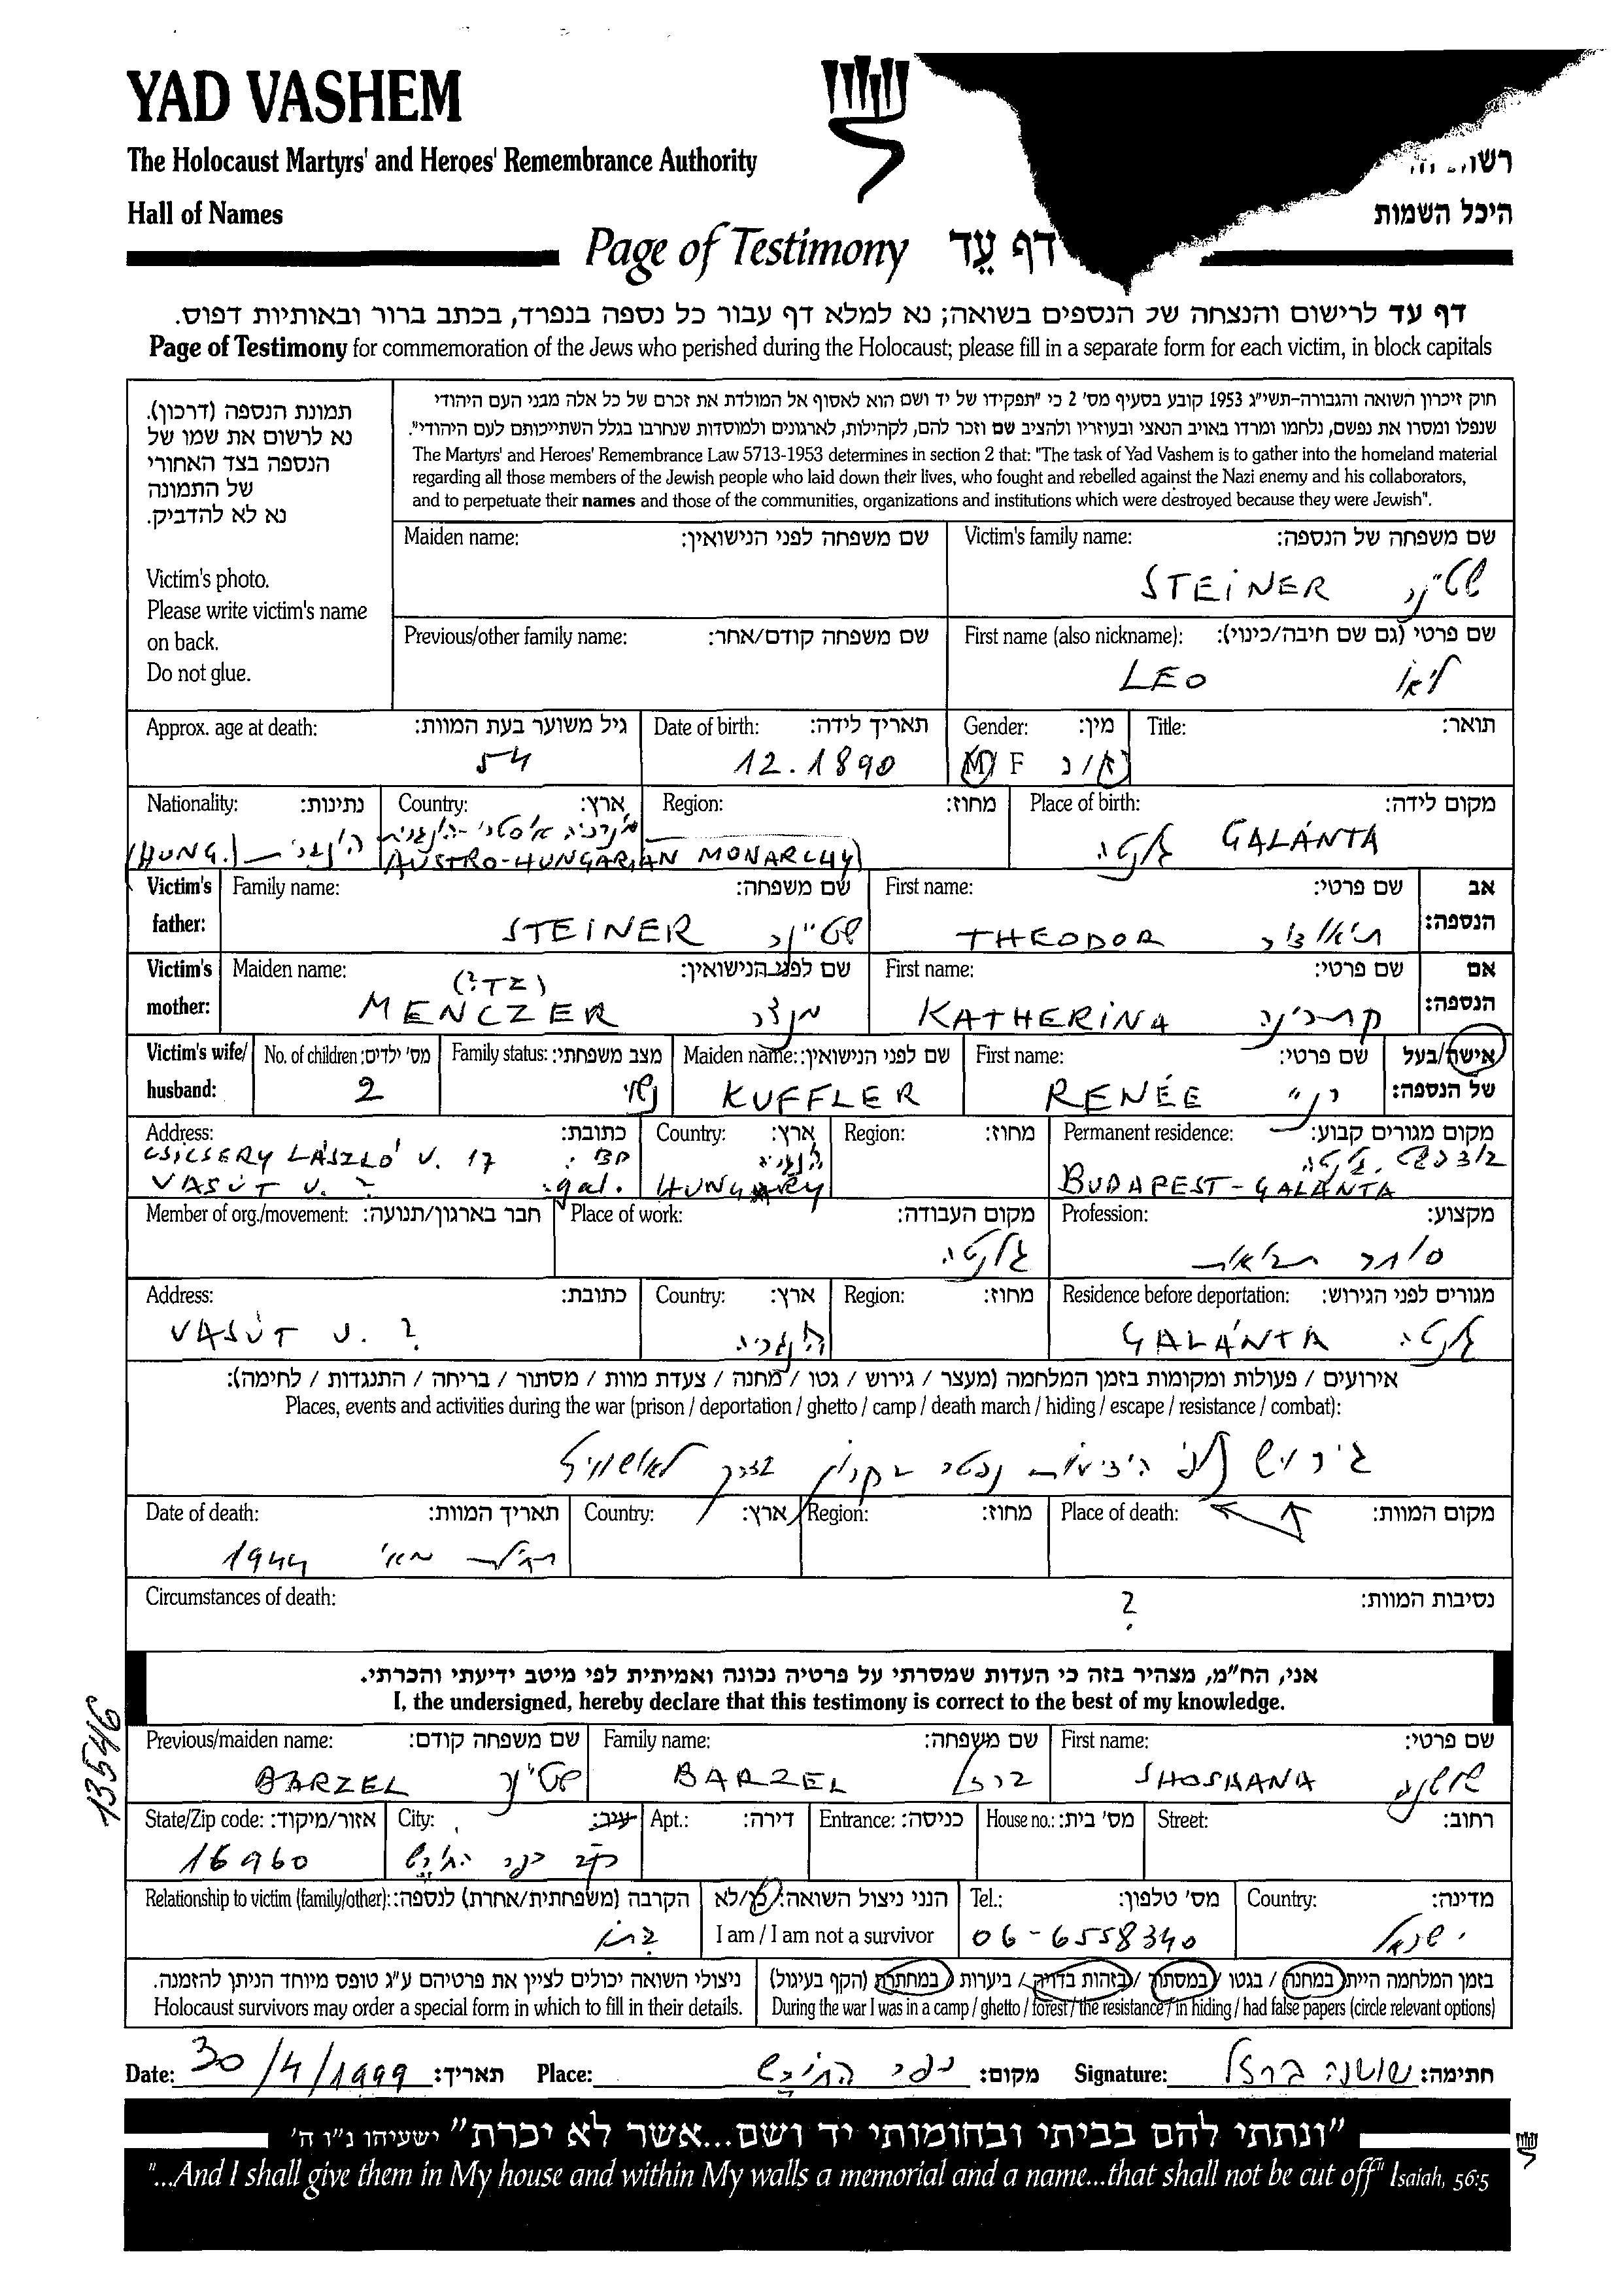 YAD VASHEM
The Holocaust Martyrs' and Heroes' Remembrance Authority
Hall of Names
היכל השמות
Page of Testimony דף עֵד
דף עד לרישום והנצחה של הנספים בשואה; נא למלא דף עבור כל נספה בנפרד, בכתב ברור ובאותיות דפוס.
Page of Testimony for commemoration of the Jews who perished during the Holocaust; please fill in a separate form for each victim, in block capitals
תמונת הנספה (דרכון).
נא לרשום את שמו של
הנספה בצד האחורי
של התמונה
נא לא להדביק.
Victim's photo.
Please write victim's name
on back.
Do not glue.
חוק זיכרון השואה והגבורה-תשי"ג 1953 קובע בסעיף מס' 2 כי "תפקידו של יד ושם הוא לאסוף אל המולדת את זכרם של כל אלה מבני העם היהודי
שנפלו ומסרו את נפשם, נלחמו ומרדו באויב הנאצי ובעוזריו ולהציב שם וזכר להם, לקהילות, לארגונים ולמוסדות שנחרבו בגלל השתייכותם לעם היהודי".
The Martyrs' and Heroes' Remembrance Law 5713-1953 determines in section 2 that: "The task of Yad Vashem is to gather into the homeland material
regarding all those members of the Jewish people who laid down their lives, who fought and rebelled against the Nazi enemy and his collaborators,
and to perpetuate their names and those of the communities, organizations and institutions which were destroyed because they were Jewish".
Maiden name: שם משפחה לפני הנישואין: Victim's family name: שם משפחה של הנספה:
STEINER שטיינר
Previous/other family name: שם משפחה קודם/אחר: First name (also nickname): שם פרטי (גם שם חיבה/כינוי):
LEO ליאו
Approx. age at death: גיל משוער בעת המוות: Date of birth: תאריך לידה: Gender: מין: Title: תואר:
54 12.1890 M F ז/נ
Nationality: נתינות: Country: ארץ: Region: מחוז: Place of birth: מקום לידה:
(HUNG.) AUSTRO-HUNGARIAN MONARCHY) גלנטה GALÁNTA
Victim's father: Family name: שם משפחה: First name: שם פרטי: אב הנספה:
STEINER שטיינר THEODOR תיאודור
Victim's mother: Maiden name: שם לפני הנישואין: First name: שם פרטי: אם הנספה:
(?TZ)
MENCZER מנצר KATHERINA קתרינה
Victim's wife/ husband: No. of children: מס' ילדים: Family status: מצב משפחתי: Maiden name: שם לפני הנישואין: First name: שם פרטי: אישה/בעל של הנספה:
2 נשוי KUFFLER RENÉE
Address: כתובת: Country: ארץ: Region: מחוז: Permanent residence: מקום מגורים קבוע:
CSICSERY LÁSZLÓ U. 17 : BP הונגריה בודפשט. גלנטה
VASÚT U. ? :gal. HUNGARY BUDAPEST-GALÁNTA
Member of org./movement: חבר בארגון/תנועה: Place of work: מקום העבודה: Profession: מקצוע:
גלנטה סוחר תבואות
Address: כתובת: Country: ארץ: Region: מחוז: Residence before deportation: מגורים לפני הגירוש:
VASÚT U. ? הונגריה GALÁNTA גלנטה
אירועים / פעולות ומקומות בזמן המלחמה (מעצר / גירוש / גטו / מחנה / צעדת מוות / מסתור / בריחה / התנגדות / לחימה):
Places, events and activities during the war (prison / deportation / ghetto / camp / death march / hiding / escape / resistance / combat):
גירוש לפי הידיעות נפטר בקרון בדרך לאושוויץ
Date of death: תאריך המוות: Country: ארץ: Region: מחוז: Place of death: מקום המוות:
תחילת מאי 1944
Circumstances of death: נסיבות המוות:
?
אני, הח"מ, מצהיר בזה כי העדות שמסרתי על פרטיה נכונה ואמיתית לפי מיטב ידיעתי והכרתי.
I, the undersigned, hereby declare that this testimony is correct to the best of my knowledge.
13546
Previous/maiden name: שם משפחה קודם: Family name: שם משפחה: First name: שם פרטי:
BARZEL שטיינר BARZEL ברזל SHOSHANA שושנה
State/Zip code: אזור/מיקוד: City: עיר: Apt.: דירה: Entrance: כניסה: House no.: מס' בית: Street: רחוב:
16960
Relationship to victim (family/other): הקרבה (משפחתית/אחרת) לנספה: הנני ניצול השואה: כן/לא Tel.: מס' טלפון: Country: מדינה:
בתו I am / I am not a survivor 06-6558340 ישראל
ניצולי השואה יכולים לציין את פרטיהם ע"ג טופס מיוחד הניתן להזמנה.
Holocaust survivors may order a special form in which to fill in their details.
בזמן המלחמה הייתי במחנה / בגטו / במסתור / בזהות בדויה / ביערות / במחתרת (הקף בעיגול)
During the war I was in a camp / ghetto / forest / the resistance / in hiding / had false papers (circle relevant options)
Date: 30/4/1999 תאריך: Place: מקום: Signature: שושנה ברזל חתימה:
"ונתתי להם בביתי ובחומותי יד ושם...אשר לא יכרת" ישעיהו נ"ו ה'
"...And I shall give them in My house and within My walls a memorial and a name...that shall not be cut off" Isaiah, 56:5